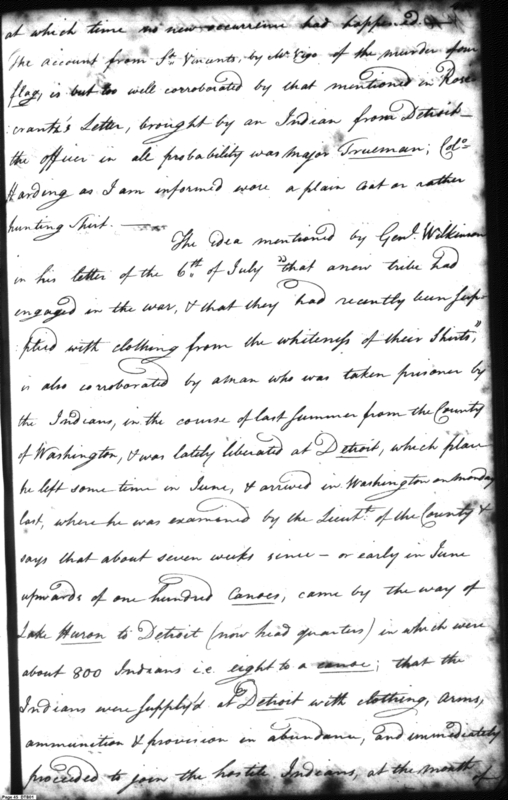 at which time no new occurrence had happened. —
The account from St. Vincents, by Mr. Vigo of the murder of our
flag, is but too well corroborated by that mentioned in Rose-
crantz's Letter, brought by an Indian from Detroit —
the officer in all probability was Major Trueman; Colo.
Harding as I am informed wore a plain Coat or rather
hunting Shirt. —
The idea mentioned by Genl. Wilkinson
in his letter of the 6th. of July "that a new tribe had
engaged in the war, & that they had recently been sup-
plied with clothing from the whiteness of their Shirts",
is also corroborated by a man who was taken prisoner by
the Indians, in the course of last Summer from the County
of Washington, & was lately liberated at Detroit, which place
he left some time in June, & arrived in Washington on Monday
last, where he was examined by the Lieutt. of the County &
says that about seven weeks since — or early in June
upwards of one hundred Canoes, came by the way of
Lake Huron to Detroit (now head quarters) in which were
about 800 Indians i.e. eight to a canoe; that the
Indians were supply'd at Detroit with clothing, arms,
ammunition & provision in abundance, and immediately
proceeded to join the hostile Indians, at the mouth
of
Page 45